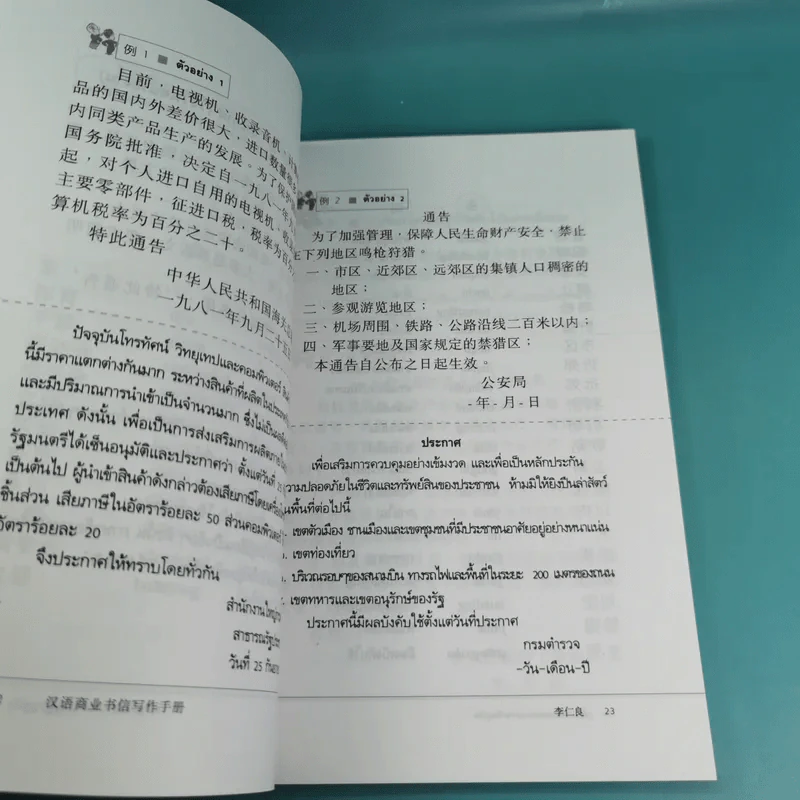 例 1 ■ ตัวอย่าง 1
目前，电视机、收录音机、
品的国内外差价很大，进口数量
内同类产品生产的发展。为了保护
国务院批准，决定自一九八一年九
起，对个人进口自用的电视机、收
主要零部件，征进口税，税率为百分
算机税率为百分之二十。
特此通告
中华人民共和国海关
一九八一年九月二十五
ปัจจุบันโทรทัศน์ วิทยุเทปและคอมพิวเตอร์
นี้มีราคาแตกต่างกันมาก ระหว่างสินค้าที่ผลิตใน
และมีปริมาณการนำเข้าเป็นจำนวนมาก ซึ่งไม่เป็น
ประเทศ ดังนั้น เพื่อเป็นการส่งเสริมการผลิตภาย
รัฐมนตรีได้เซ็นอนุมัติและประกาศว่า ตั้งแต่วันที่
เป็นต้นไป ผู้นำเข้าสินค้าดังกล่าวต้องเสียภาษีโดย
ชิ้นส่วน เสียภาษีในอัตราร้อยละ 50 ส่วนคอมพิวเตอร์
อัตราร้อยละ 20
จึงประกาศให้ทราบโดยทั่วกัน
สำนักงานใหญ่
สาธารณรัฐ
วันที่ 25 กัน
汉语商业书信写作手册
例 2 ■ ตัวอย่าง 2
通告
为了加强管理，保障人民生命财产安全，禁止
下列地区鸣枪狩猎。
一、市区、近郊区、远郊区的集镇人口稠密的
地区；
二、参观游览地区；
三、机场周围、铁路、公路沿线二百米以内；
四、军事要地及国家规定的禁猎区；
本通告自公布之日起生效。
公安局
-年-月-日
ประกาศ
เพื่อเสริมการควบคุมอย่างเข้มงวด และเพื่อเป็นหลักประกัน
ความปลอดภัยในชีวิตและทรัพย์สินของประชาชน ห้ามมิให้ยิงปืนล่าสัตว์
ในพื้นที่ต่อไปนี้
เขตตัวเมือง ชานเมืองและเขตชุมชนที่มีประชาชนอาศัยอยู่อย่างหนาแน่น
เขตท่องเที่ยว
บริเวณรอบๆของสนามบิน ทางรถไฟและพื้นที่ในระยะ 200 เมตรของถนน
เขตทหารและเขตอนุรักษ์ของรัฐ
ประกาศนี้มีผลบังคับใช้ตั้งแต่วันที่ประกาศ
กรมตำรวจ
-วัน-เดือน-ปี
李仁良 23